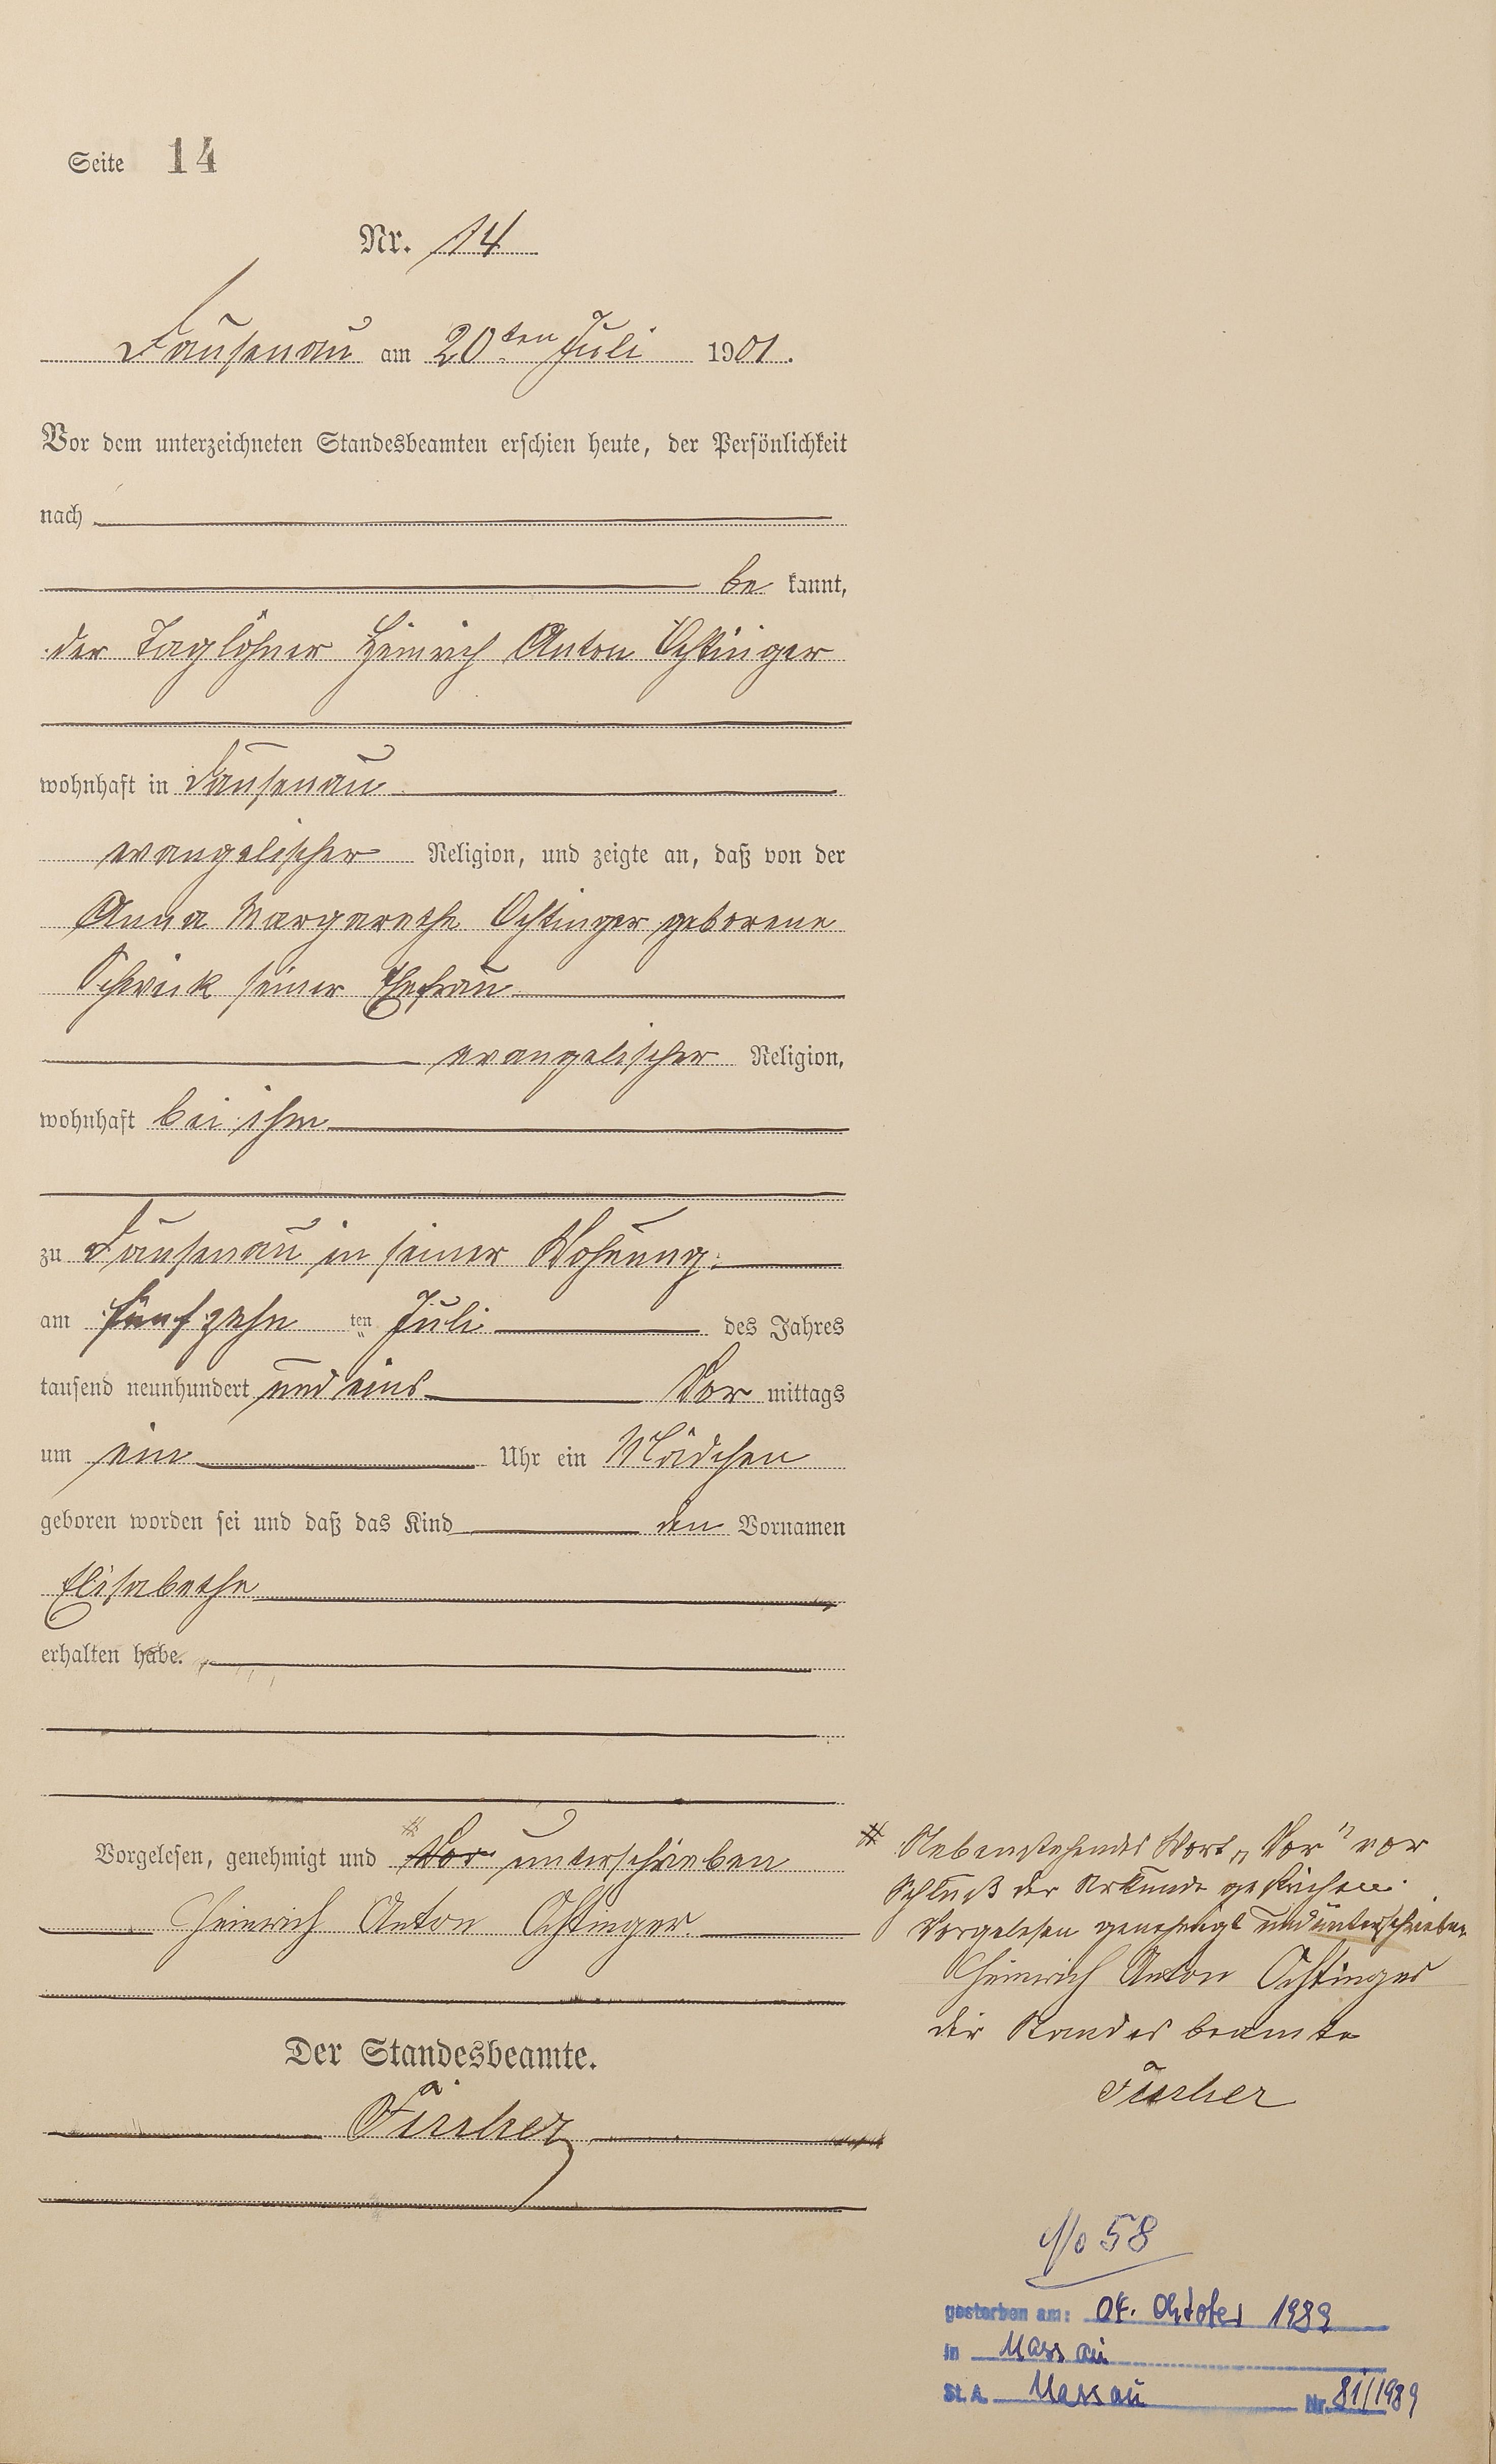 Seite 14
Nr. 14
Dausenau am 20ten Juli 1901.
Vor dem unterzeichneten Standesbeamten erschien heute, der Persönlichkeit
nach
be kannt,
der Taglöhner Heinrich Anton Ochtinger
wohnhaft in Dausenau
evangelischer Religion, und zeigte an, daß von der
Anna Margarethe Ochtinger geborene
seiner Ehefrau
evangelischer Religion,
wohnhaft bei ihm
zu Dausenau in seiner Wohnung
am fünfzehn ten Juli des Jahres
tausend neunhundert und eins Vor mittags
um ein Uhr ein Mädchen
geboren worden sei und daß das Kind den Vornamen
Elisabethe
erhalten habe.
Vorgelesen, genehmigt und Vor unterschrieben
Heinrich Anton Ochtinger
Der Standesbeamte.
# Nebenstehendes Wort „Vor" vor
Schluß der Urkunde gestrichen.
Vorgelesen genehmigt und unterschrieben
Heinrich Anton Ochtinger
der Standesbeamte
No 58
gestorben am: 04. Oktober 1989
in Nassau
St. A. Nassau Nr. 81/1989